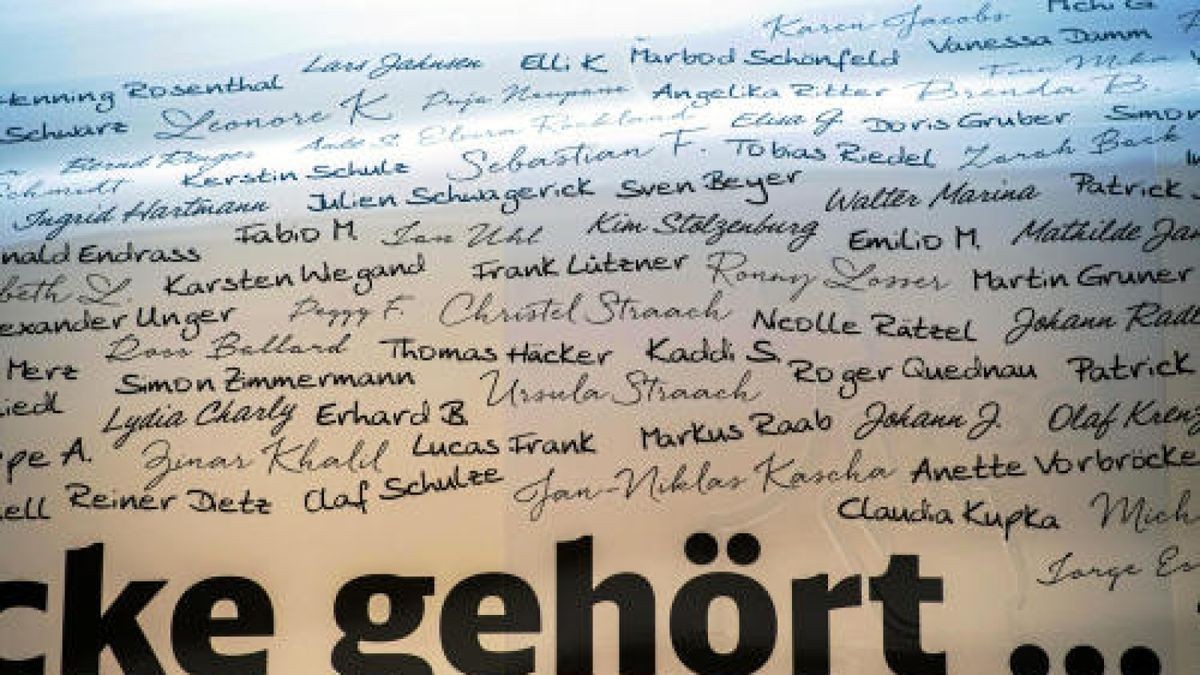 Karen Jacobs
Henning Rosenthal Lars Jahnsen Elli K Marbod Schönfeld Vanessa Damm
Schwarz Leonore K Angelika Ritter Brenda B.
Elisa G. Doris Gruber Simon
Schmidt Kerstin Schulz Sebastian F. Tobias Riedel Zarah Beck
Ingrid Hartmann Julien Schwagerick Sven Beyer Walter Marina Patrick
nald Endrass Fabio M. Jan Uhl Kim Stolzenburg Emilio M. Mathilde Jan
beth L. Karsten Wiegand Frank Lützner Ronny Losser Martin Gruner
exander Unger Peggy F. Christel Straach Neolle Rätzel Johann Rad
Merz Ross Ballard Thomas Häcker Kaddi S. Roger Quednau Patrick
iedl Simon Zimmermann Ursula Straach
Lydia Charly Erhard B. Markus Raab Johann J. Olaf Kren
ppe A. Zinar Khalil Lucas Frank Anette Vorbröcke
ell Reiner Dietz Olaf Schulze Jan-Niklas Kascha
Claudia Kupka Mich
Jorge Es
cke gehört ...